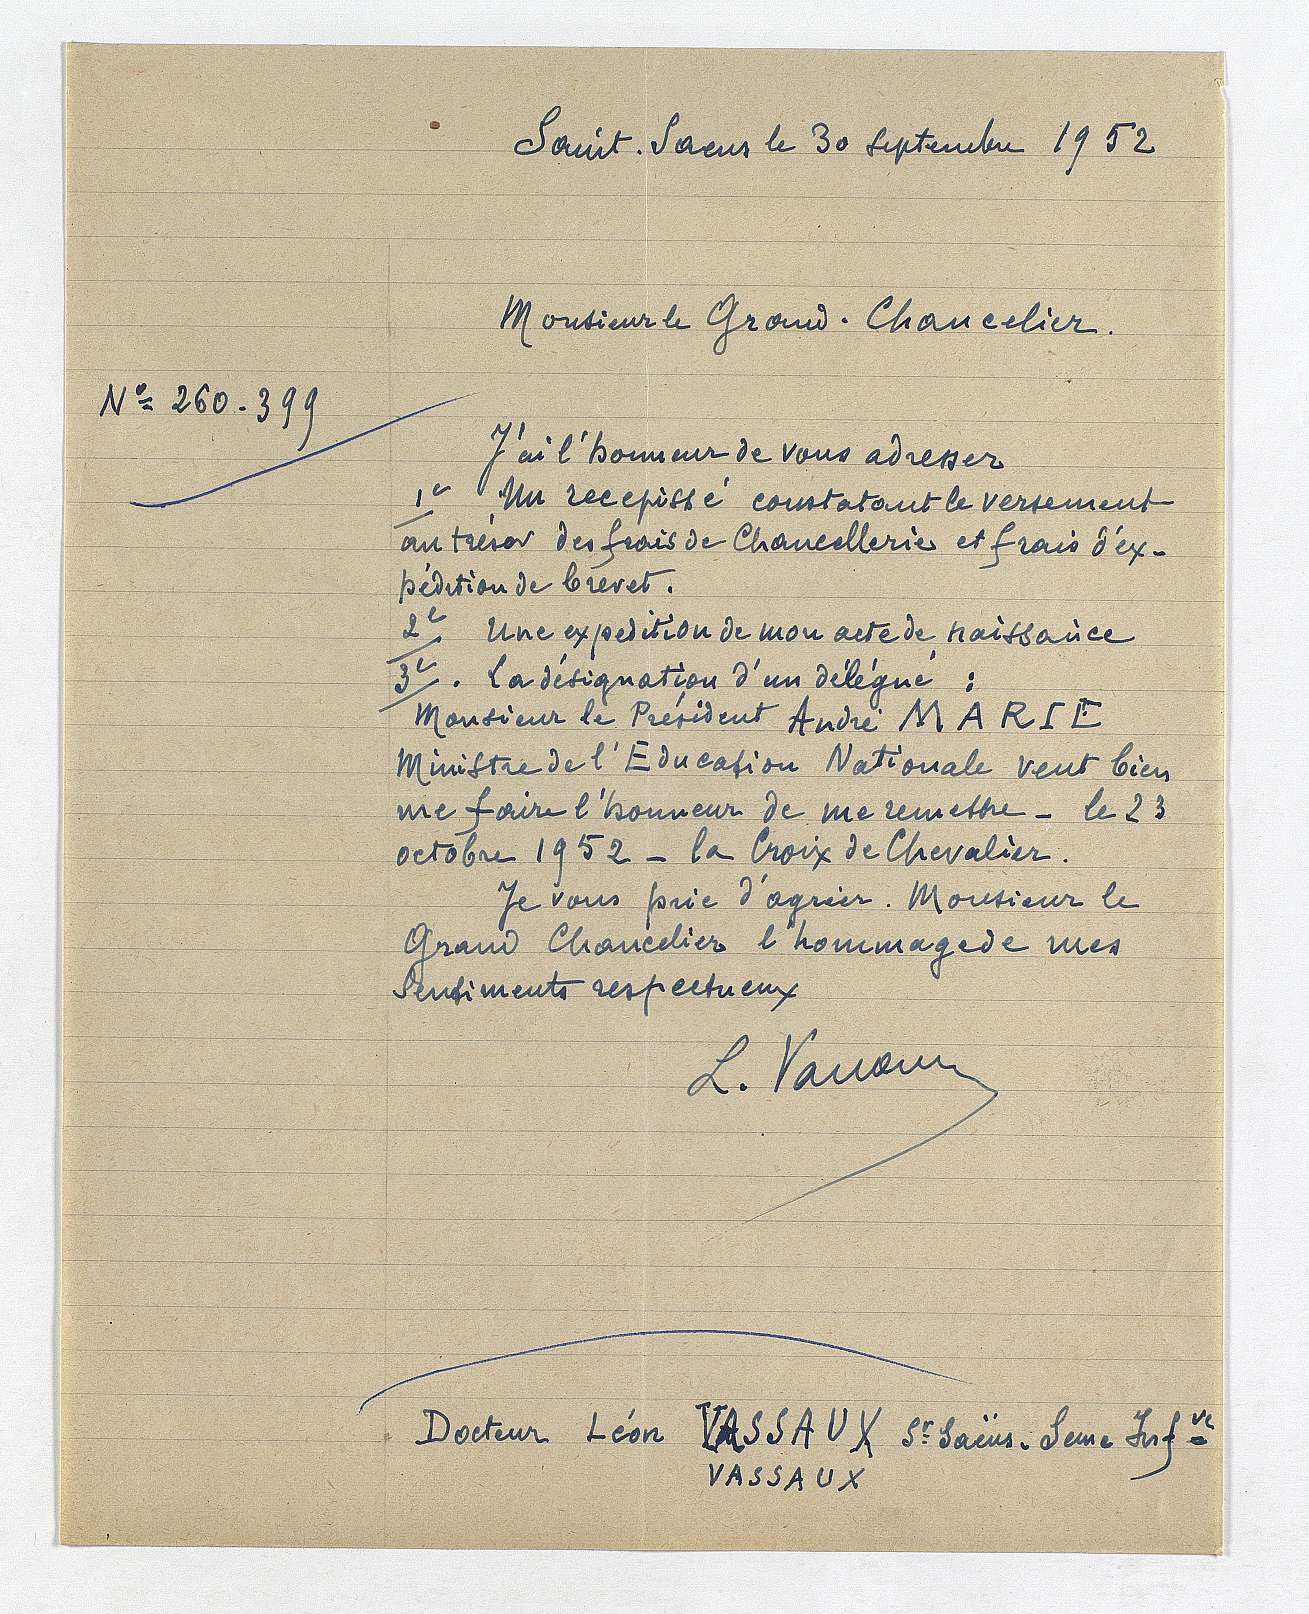 Saint. Saens le 30 septembre 1952
Monsieur le Grand. Chancelier.
No 260-399
J'ai l'honneur de vous adresser
1e Un recepissé constatant le versement
au trésor des frais de Chancellerie et frais d'ex-
pédition de brevet.
2e Une expedition de mon acte de naissance
3e. La désignation d'un délégué :
Monsieur le Président André MARIE
Ministre de l'Education Nationale veut bien
me faire l'honneur de me remettre - le 23
octobre 1952 - la Croix de Chevalier.
Je vous prie d'agréer. Monsieur le
Grand Chancelier l'hommage de mes
Sentiments respectueux
L. Vassaux
Docteur Léon VASSAUX St Saëns. Seine Infre
VASSAUX